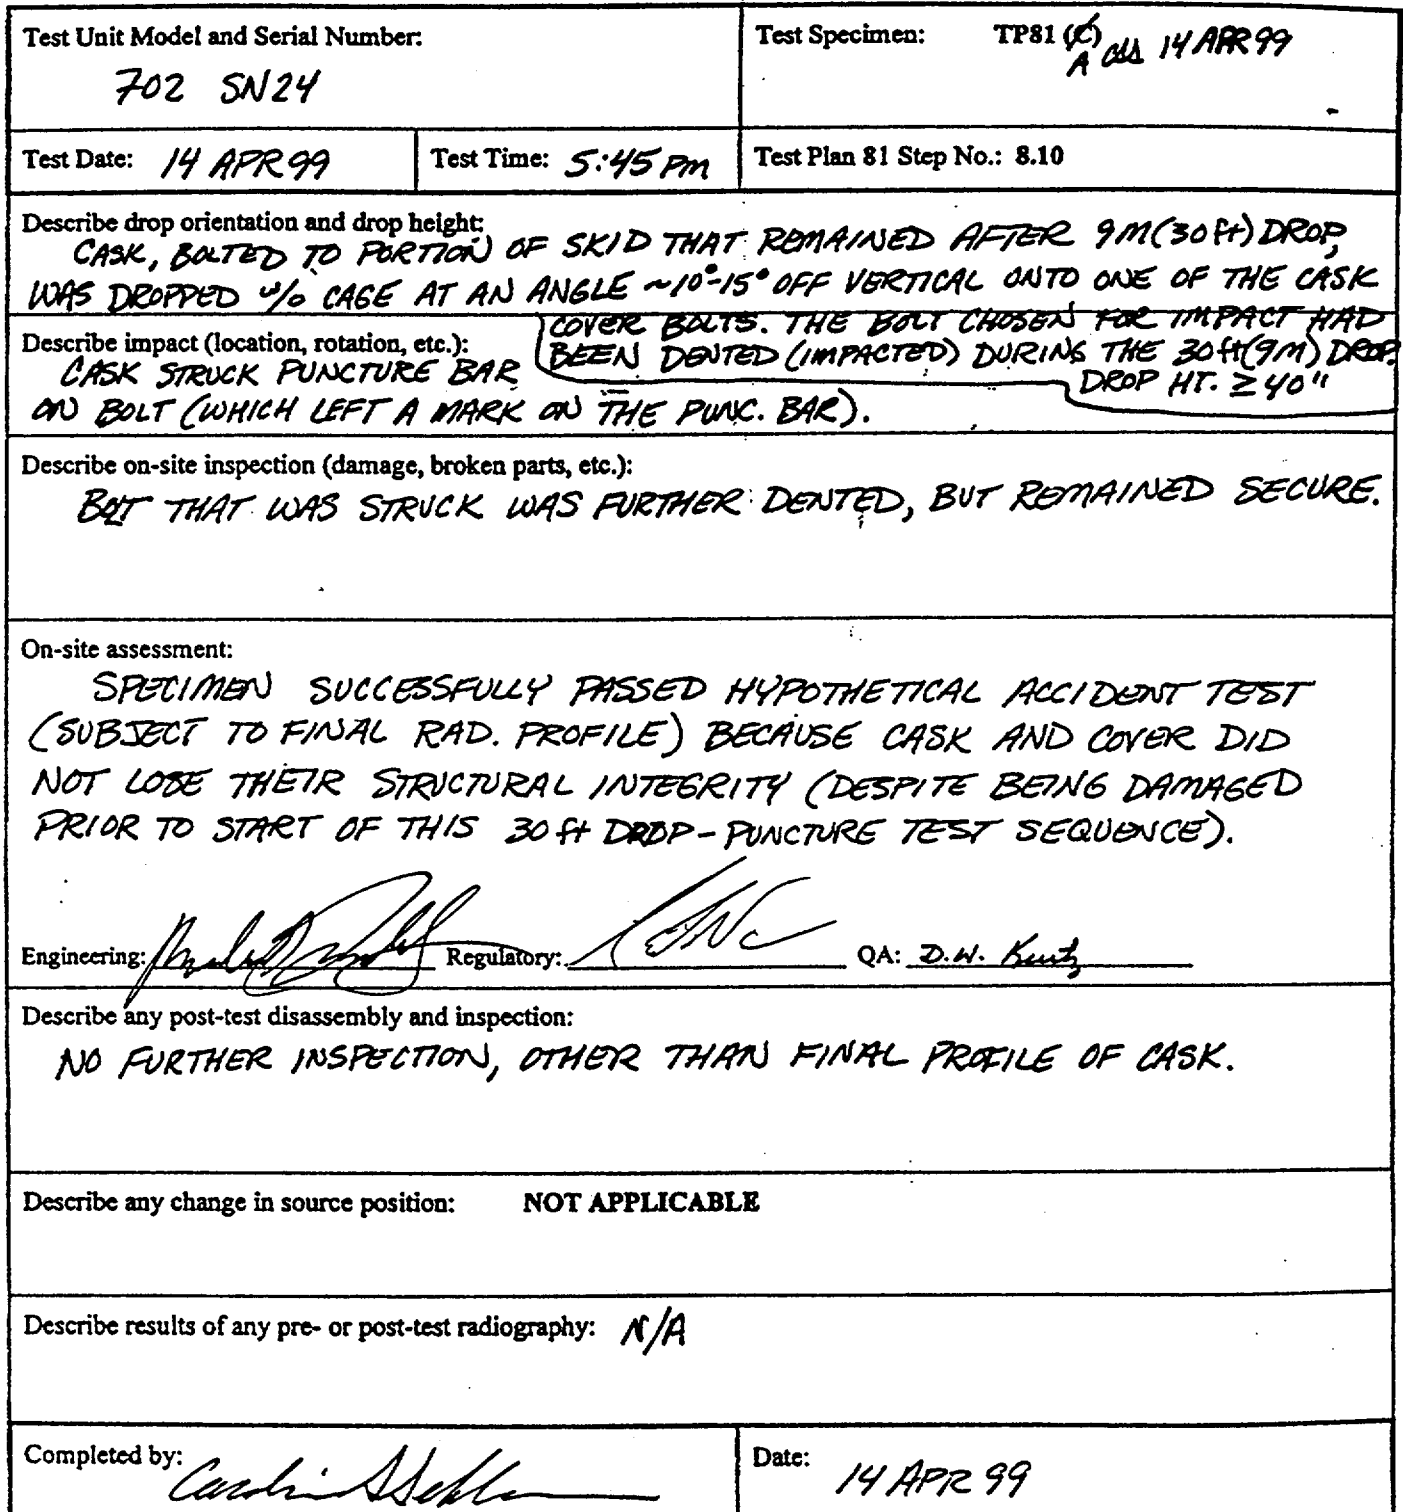 Test Unit Model and Serial Number:
702 SN24
Test Specimen: TP81 (C)
A CSS 14 APR 99
Test Date: 14 APR 99
Test Time: 5:45 PM
Test Plan 81 Step No.: 8.10
Describe drop orientation and drop height:
CASK, BOLTED TO PORTION OF SKID THAT REMAINED AFTER 9M (30 ft) DROP,
WAS DROPPED W/O CAGE AT AN ANGLE ~10°-15° OFF VERTICAL ONTO ONE OF THE CASK
COVER BOLTS. THE BOLT CHOSEN FOR IMPACT HAD
BEEN DENTED (IMPACTED) DURING THE 30 ft (9M) DROP.
DROP HT. ≥ 40"
Describe impact (location, rotation, etc.):
CASK STRUCK PUNCTURE BAR
ON BOLT (WHICH LEFT A MARK ON THE PUNC. BAR).
Describe on-site inspection (damage, broken parts, etc.):
BOLT THAT WAS STRUCK WAS FURTHER DENTED, BUT REMAINED SECURE.
On-site assessment:
SPECIMEN SUCCESSFULLY PASSED HYPOTHETICAL ACCIDENT TEST
(SUBJECT TO FINAL RAD. PROFILE) BECAUSE CASK AND COVER DID
NOT LOSE THEIR STRUCTURAL INTEGRITY (DESPITE BEING DAMAGED
PRIOR TO START OF THIS 30 ft DROP-PUNCTURE TEST SEQUENCE).
Engineering: Regulatory: QA: D.W. Kurtz
Describe any post-test disassembly and inspection:
NO FURTHER INSPECTION, OTHER THAN FINAL PROFILE OF CASK.
Describe any change in source position: NOT APPLICABLE
Describe results of any pre- or post-test radiography: N/A
Completed by:
Date: 14 APR 99